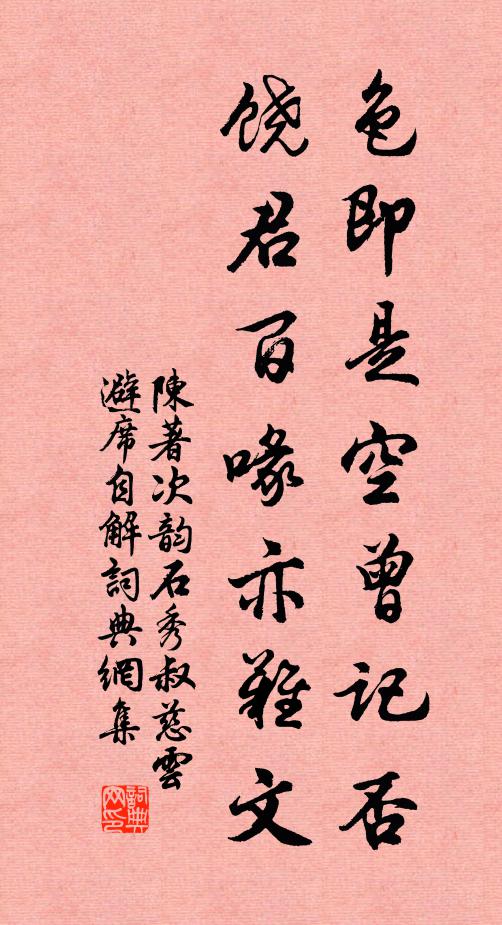 色即是空曾记否
饶君百喙亦难文
陳著次韵石秀叔慈雲
避席自解詞典網集
詞典网印